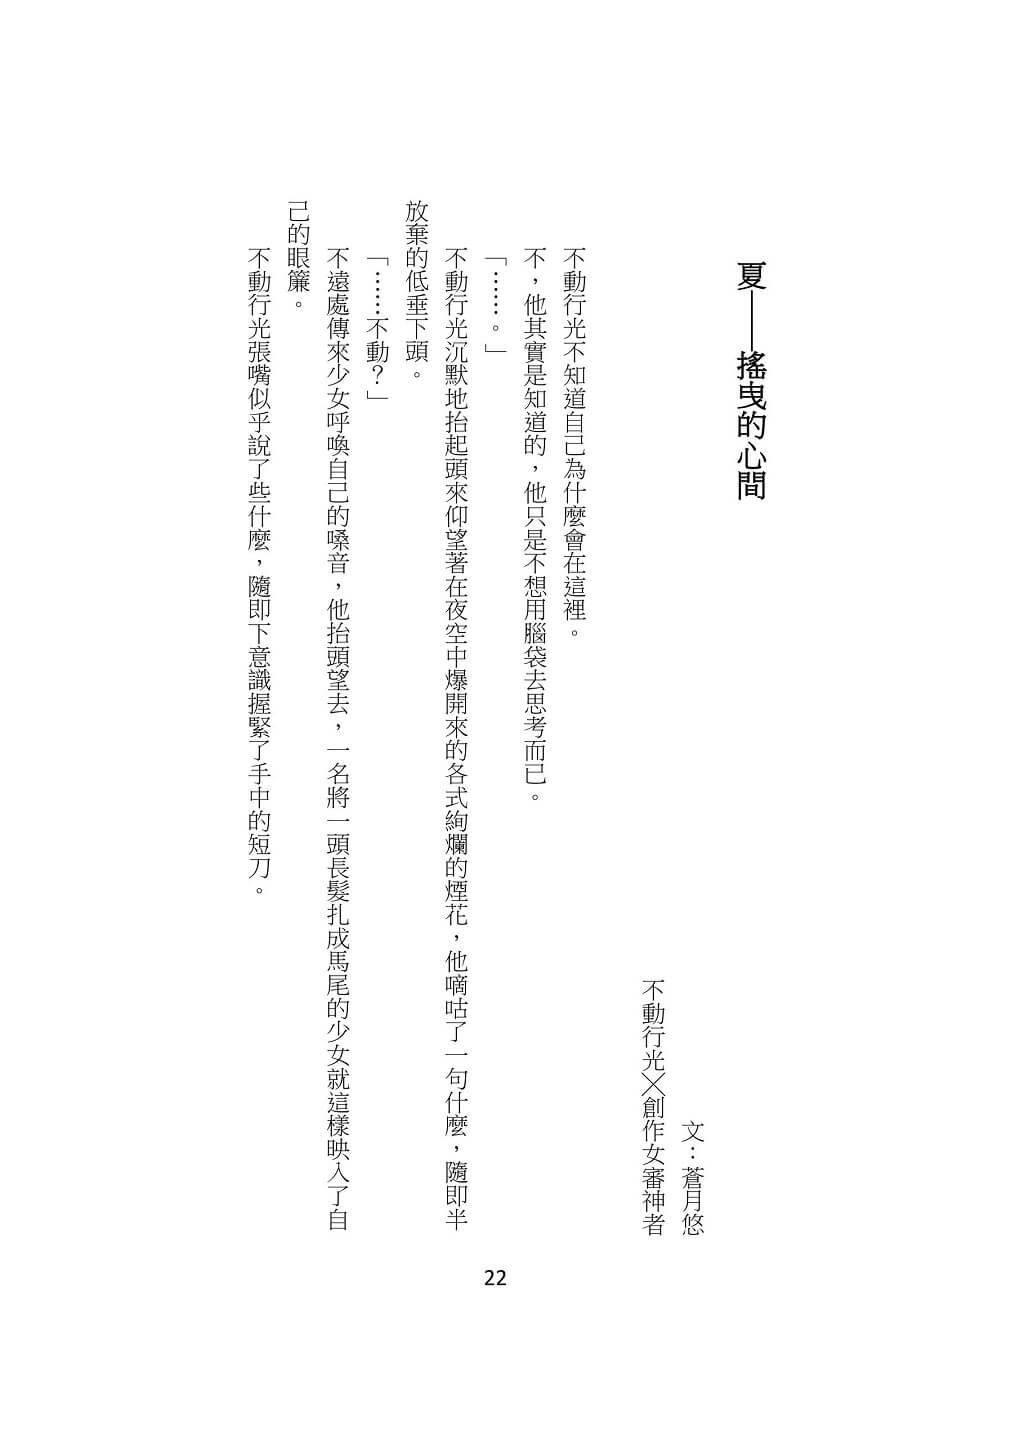 夏——搖曳的心間
文：蒼月悠
不動行光╳創作女審神者
不動行光不知道自己為什麼會在這裡。
不，他其實是知道的，他只是不想用腦袋去思考而已。
「……。」
不動行光沉默地抬起頭來仰望著在夜空中爆開來的各式絢爛的煙花，他嘀咕了一句什麼，隨即半
放棄的低垂下頭。
「……不動？」
不遠處傳來少女呼喚自己的嗓音，他抬頭望去，一名將一頭長髮扎成馬尾的少女就這樣映入了自
己的眼簾。
不動行光張嘴似乎說了些什麼，隨即下意識握緊了手中的短刀。
22